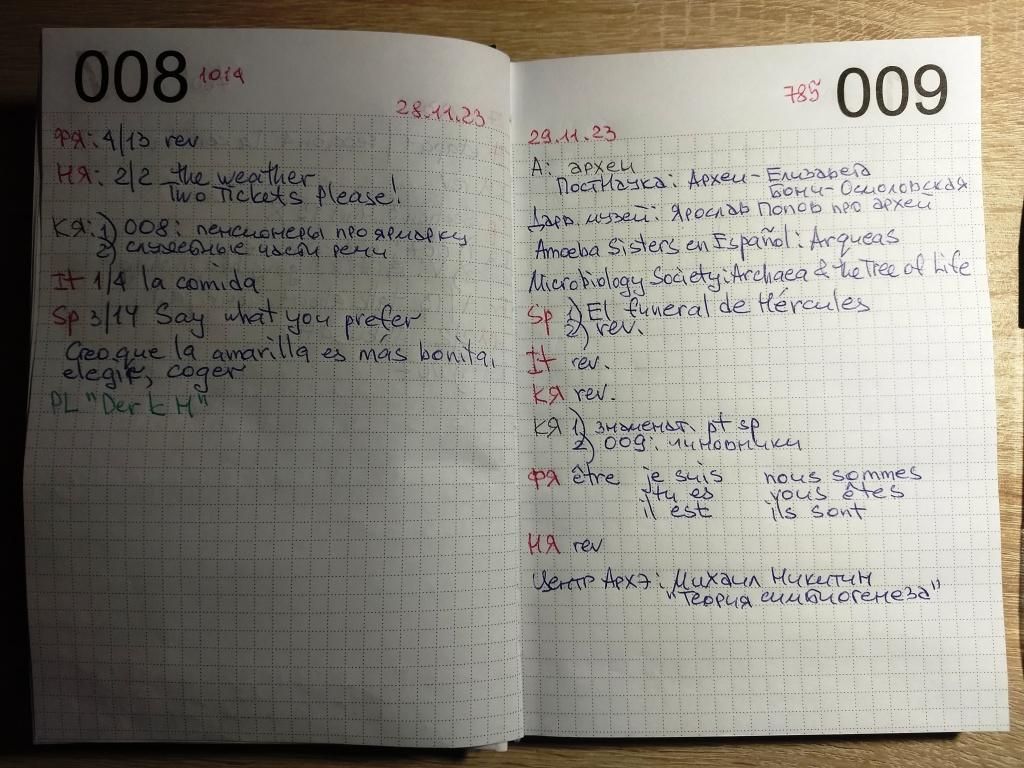 008 1014
28.11.23
ФЯ: 4/13 rev
НЯ: 2/2 the weather
Two Tickets please!
КЯ: 1) 008: пенсионеры про ярмарку
2) служебные части речи
It 1/4 la comida
Sp 3/14 Say what you prefer
Creo que la amarilla es más bonita,
elegir, coger
PL "Der k H"
785 009
29.11.23
А: археи
ПостНаука: Археи - Елизавета
Бонч-Осмоловская
Дарв. музей: Ярослав Попов про археи
Amoeba Sisters en Español: Arqueas
Microbiology Society: Archaea & the Tree of Life
Sp 1) El funeral de Hércules
2) rev.
It rev.
КЯ rev.
КЯ 1) знаменат. pt sp
2) 009: чиновники
ФЯ être je suis nous sommes
tu es vous êtes
il est ils sont
НЯ rev
Центр Архэ: Михаил Никитин
"Теория симбиогенеза"